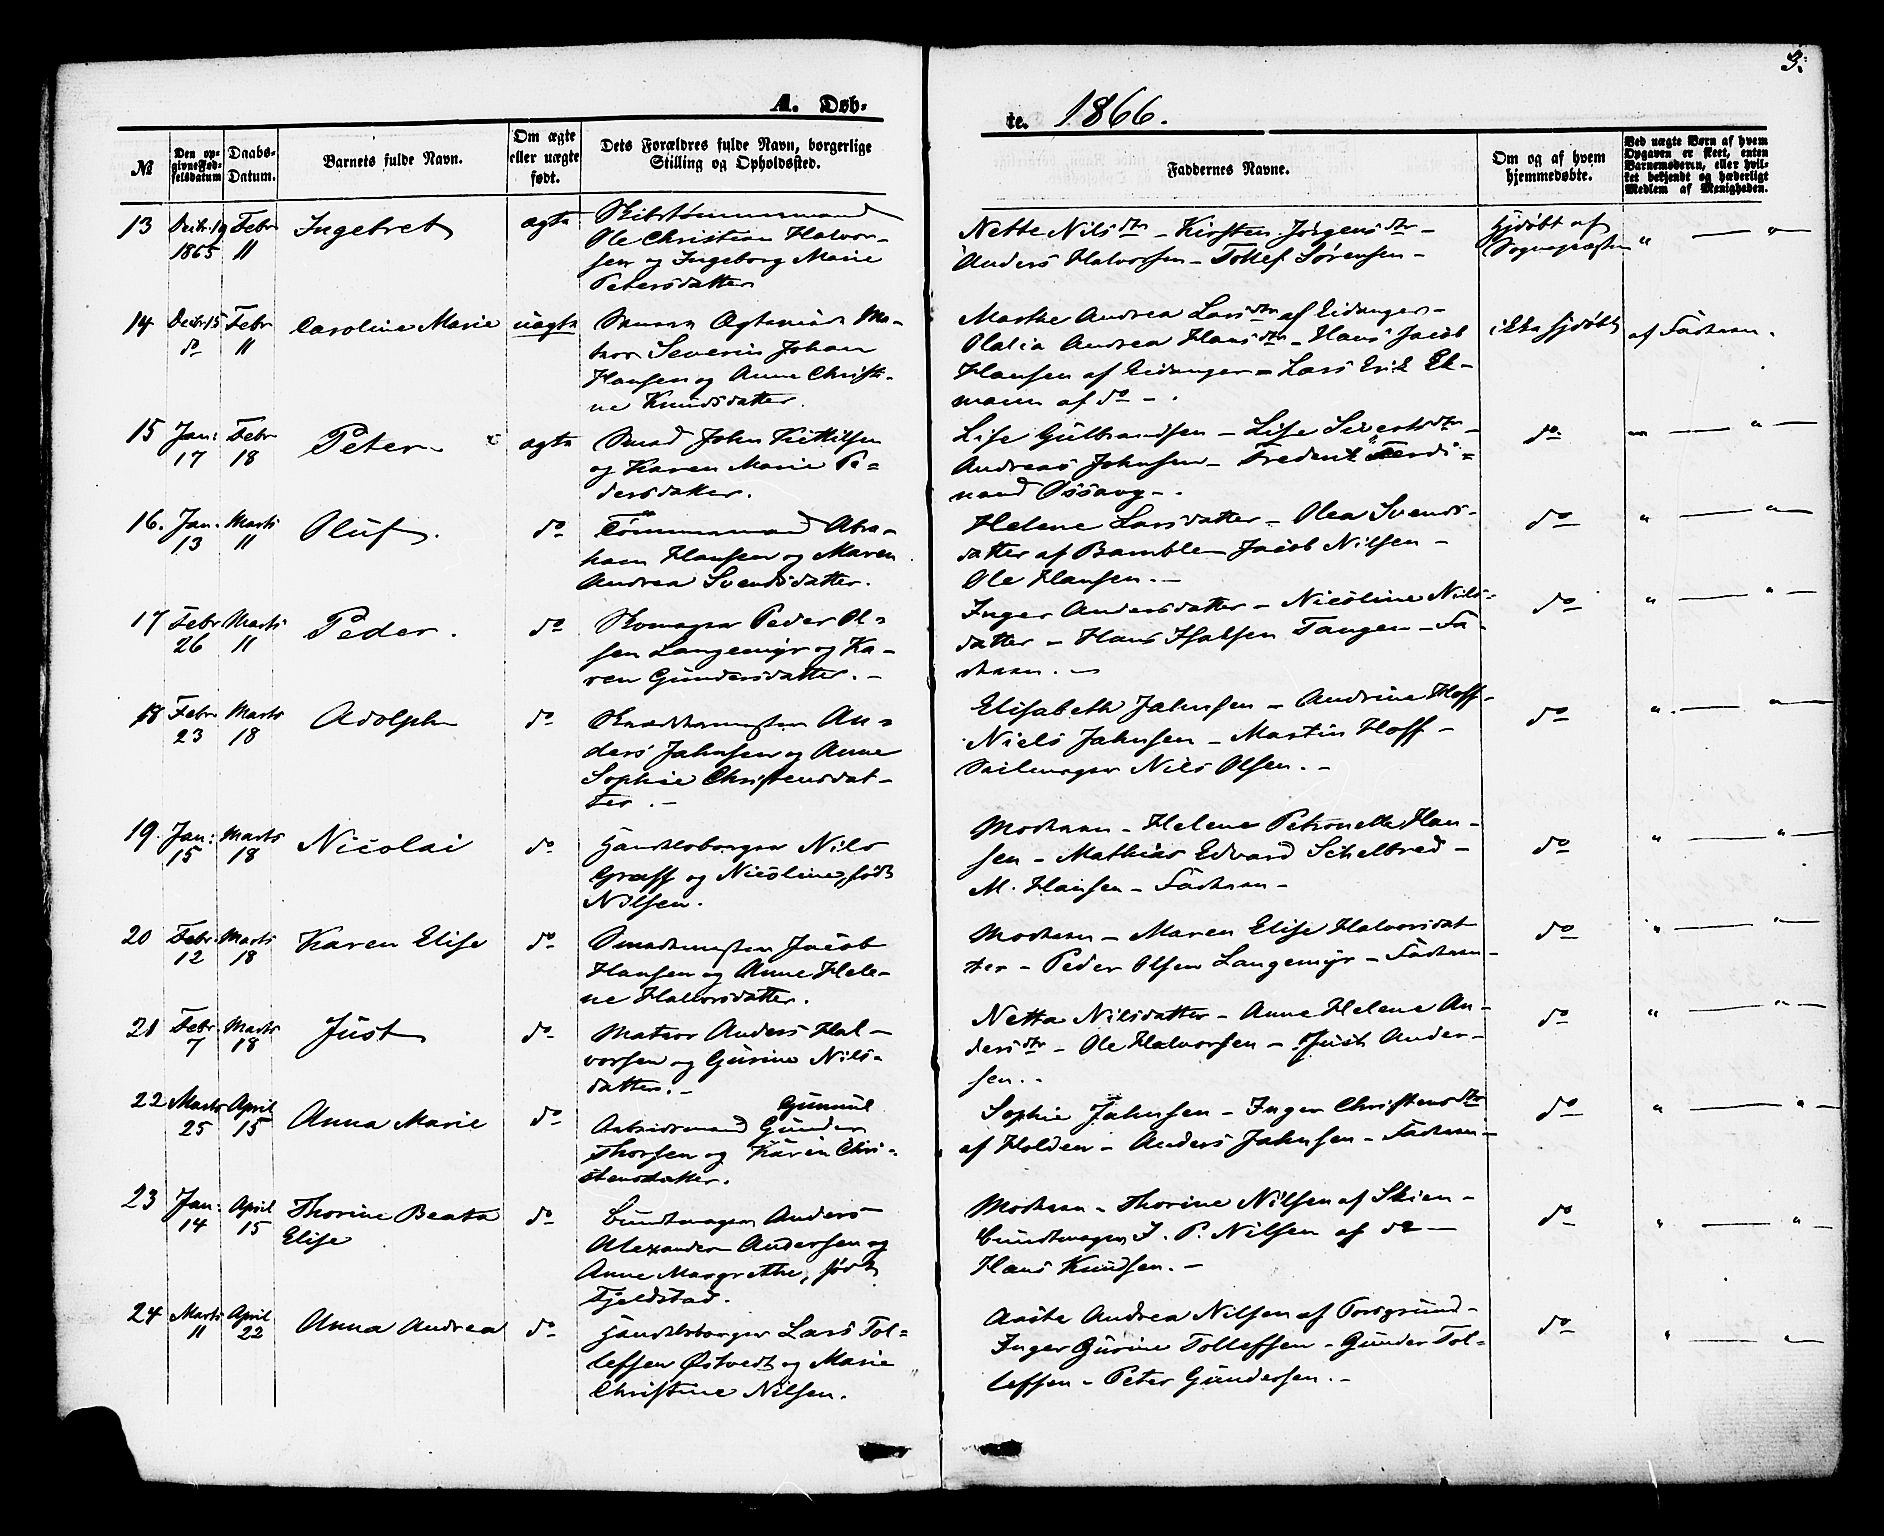 3.
A. Døb-
te. 1866.
№
Den opgivne Fødselsdatum
Daabs-Datum.
Barnets fulde Navn.
Om ægte eller uægte født.
Dets Forældres fulde Navn, borgerlige Stilling og Opholdssted.
Faddernes Navne.
Om og af hvem hjemmedøbte.
Ved uægte Børn af hvem Opgaven er skeet, enten Barnemoderen, eller hvilket bekjendt og hæderligt Medlem af Menigheden.
13 Decbr. 19 1865 Febr 11 Ingebret ægte
Skibstømmermand
Ole Christian Halvor-
sen og Ingeborg Marie
Petersdatter
Nette Nilsdtr – Kirsten Jørgensdtr –
Anders Halvorsen – Tollef Sørensen –
Hjdøbt af
Sognepræsten " — "
14 Decbr 15 do Febr 11 Caroline Marie uægte
Ma-
tros Severin Johan
Hansen og Anne Christi-
ne Knudsdatter.
Marthe Andrea Larsdtr af Eidanger –
Olalia Andrea Hansdtr – Hans Jacob
Hansen af Eidanger – Lars Erik Ek-
mann af do – .
ikke hjdøbt
af Faderen.
15 Jan: 17 Febr 18 Peter ægte
Smed John Kittilsen
og Karen Marie Pe-
dersdatter.
Lise Gulbrandsen – Lise Sivertsdtr –
Andreas Johnsen – Frederik Ferdi-
nand Ossavg – .
do " — "
16. Jan. 13 Marts 11 Oluf. do
Tømmermand Abra-
ham Hansen og Maren
Andrea Svendsdatter.
Helene Larsdatter – Olea Svends-
datter af Bamble – Jacob Nilsen –
Ole Hansen. –
do " — "
17 Febr 26 Marts 11 Peder. do
Skomager Peder Ol-
sen Langemyr og Ka-
ren Gundersdatter. –
Inger Andersdatter – Nicoline Nils-
datter – Hans Halsen Tangen – Fa-
deren. –
do " — "
18 Febr 23 Marts 18 Adolph do
Skræddermester An-
ders Jahnsen og Anne
Sophie Christensdat-
ter. –
Elisabeth Jahnsen – Andrine Hoff –
Niels Jahnsen – Martin Hoff –
Seilmager Nils Olsen. –
do " — "
19. Jan: 15 Marts 18 Nicolai do
Handelsborger Nils
Graff og Nicoline, født
Nilsen.
Moderen – Helene Petronelle Han-
sen – Mathias Edvard Schelbred –
M. Hansen – Faderen –
do " — "
20 Febr. 12 Marts 18 Karen Elise do
Smedmester Jacob
Hansen og Anne Hele-
ne Halvorsdatter.
Moderen – Maren Elise Halvorsdat
ter – Peder Olsen Langemyr – Faderen –
do " — "
21 Febr. 7 Marts 18 Just do
Matros Anders Hal-
vorsen og Gurine Nils-
datter. –
Netta Nilsdatter – Anne Helene An-
dersdtr – Ole Halvorsen – Just Ander-
sen. –
do " — "
22 Marts 25 April 15 Anna Marie do
Gunnul
Arbeidsmand Gunder
Thorsen og Karen Chri-
stensdatter.
Sophie Jahnsen – Inger Christensdtr
af Holden – Anders Jahnsen – Faderen –
do " — "
23 Jan: 14 April 15 Thorine Beata
Elise do
Bundtmager Anders
Alexander Andersen og
Anne Margrethe, født
Fjeldstad.
Moderen – Thorine Nilsen af Skien –
Bundtmager J. P. Nilsen af do –
Hans Knudsen. –
do " — "
24 Marts 11 April 22 Anna Andrea do
Handelsborger Lars Tol-
lefsen Østvedt og Marie
Christine Nilsen.
Aaste Andrea Nilsen af Porsgrund –
Inger Gurine Tollefsen – Gunder Tol-
lefsen – Peter Gundersen. –
do " — "